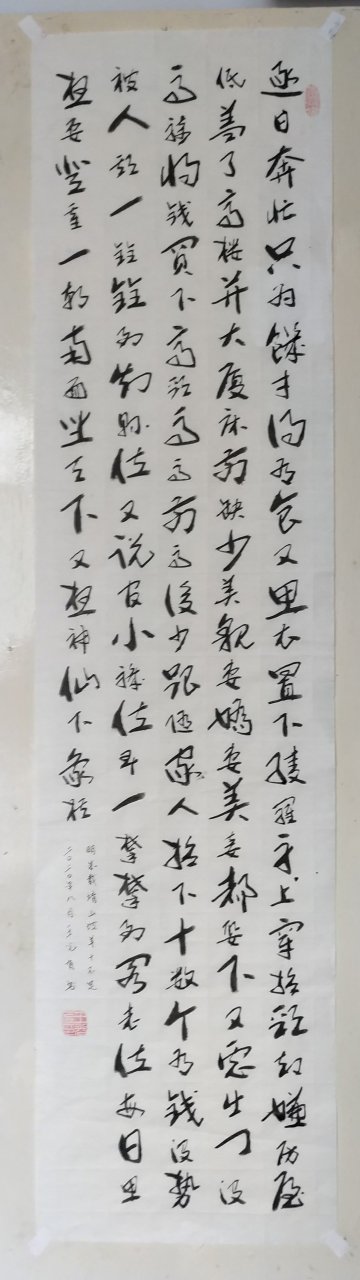 逐日奔忙只为饑才得有食又思衣置下綾羅身上穿抬頭却嫌房屋
低盖了高楼并大厦床前缺少美貌妻嬌妻美妾都娶下又慮出门没
馬騎将钱買下高頭馬馬前馬後少跟随家人招下十数个有錢没勢
被人欺一銓銓到知縣位又説官小職位卑一攀攀到阁老位每日思
想要登基一朝南面坐天下又想神仙下象棋
明朱載堉山坡羊十不足
二〇二〇年八月